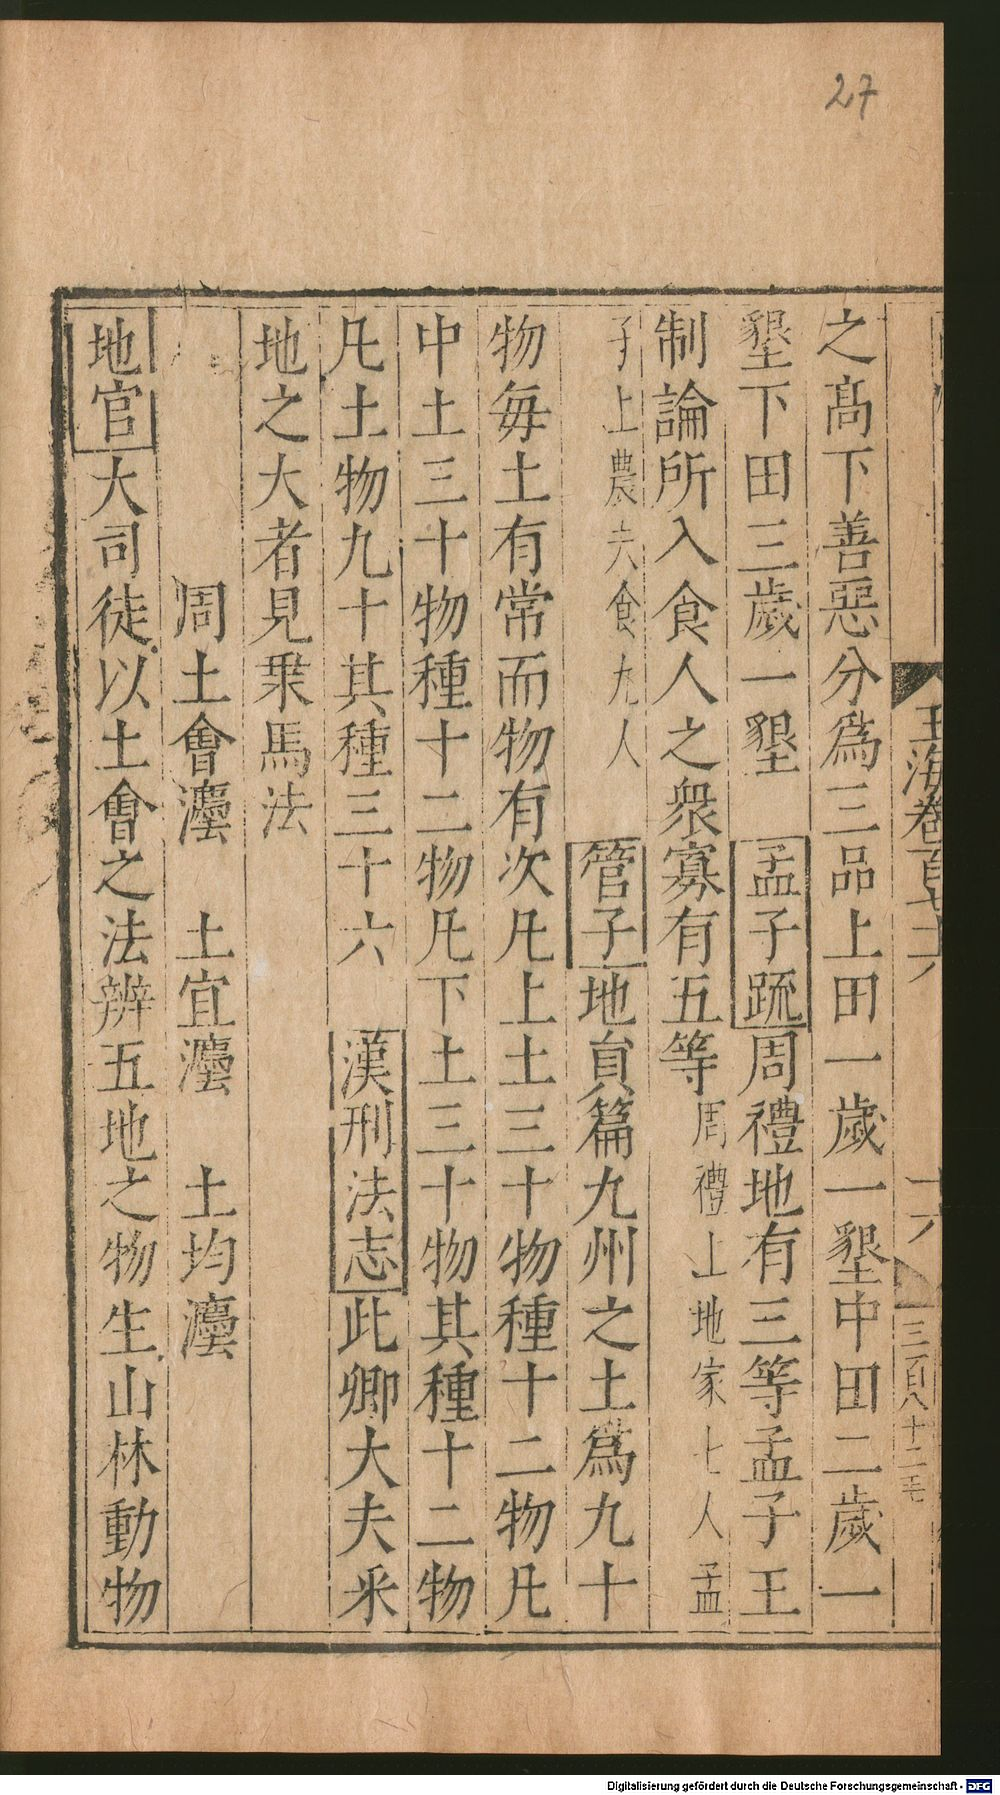 27
玉海卷百七十六
十六
三百八十二
之髙下善惡分爲三品上田一歲一墾中田二歲一
墾下田三歲一墾 孟子疏周禮地有三等孟子王
制論所入食人之衆寡有五等周禮上地家七人孟
子上農夫食九人 管子地貟篇九州之土爲九十
物每土有常而物有次凡上土三十物種十二物凡
中土三十物種十二物凡下土三十物其種十二物
凡土物九十其種三十六 漢刑法志此卿大夫采
地之大者見乗馬法
周土會灋 土宜灋 土均灋
地官大司徒以土會之法辨五地之物生山林動物
Digitalisierung gefördert durch die Deutsche Forschungsgemeinschaft - DFG